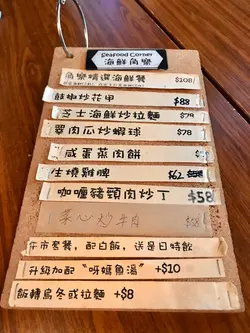 Seafood Corner
魚樂海鮮
魚樂精選海鮮餐 $108
豉椒炒花甲 $88
芝士海鮮炒拉麵 $79
翠肉瓜炒蝦球 $78
咸蛋蒸肉餅
生燒雞脾 $62
咖喱豬頸肉炒丁 $58
菜心炒牛肉
午市套餐，配白飯，送是日時飲
升級加配 "呀媽魚湯" +$10
飯轉烏冬或拉麵 +$8